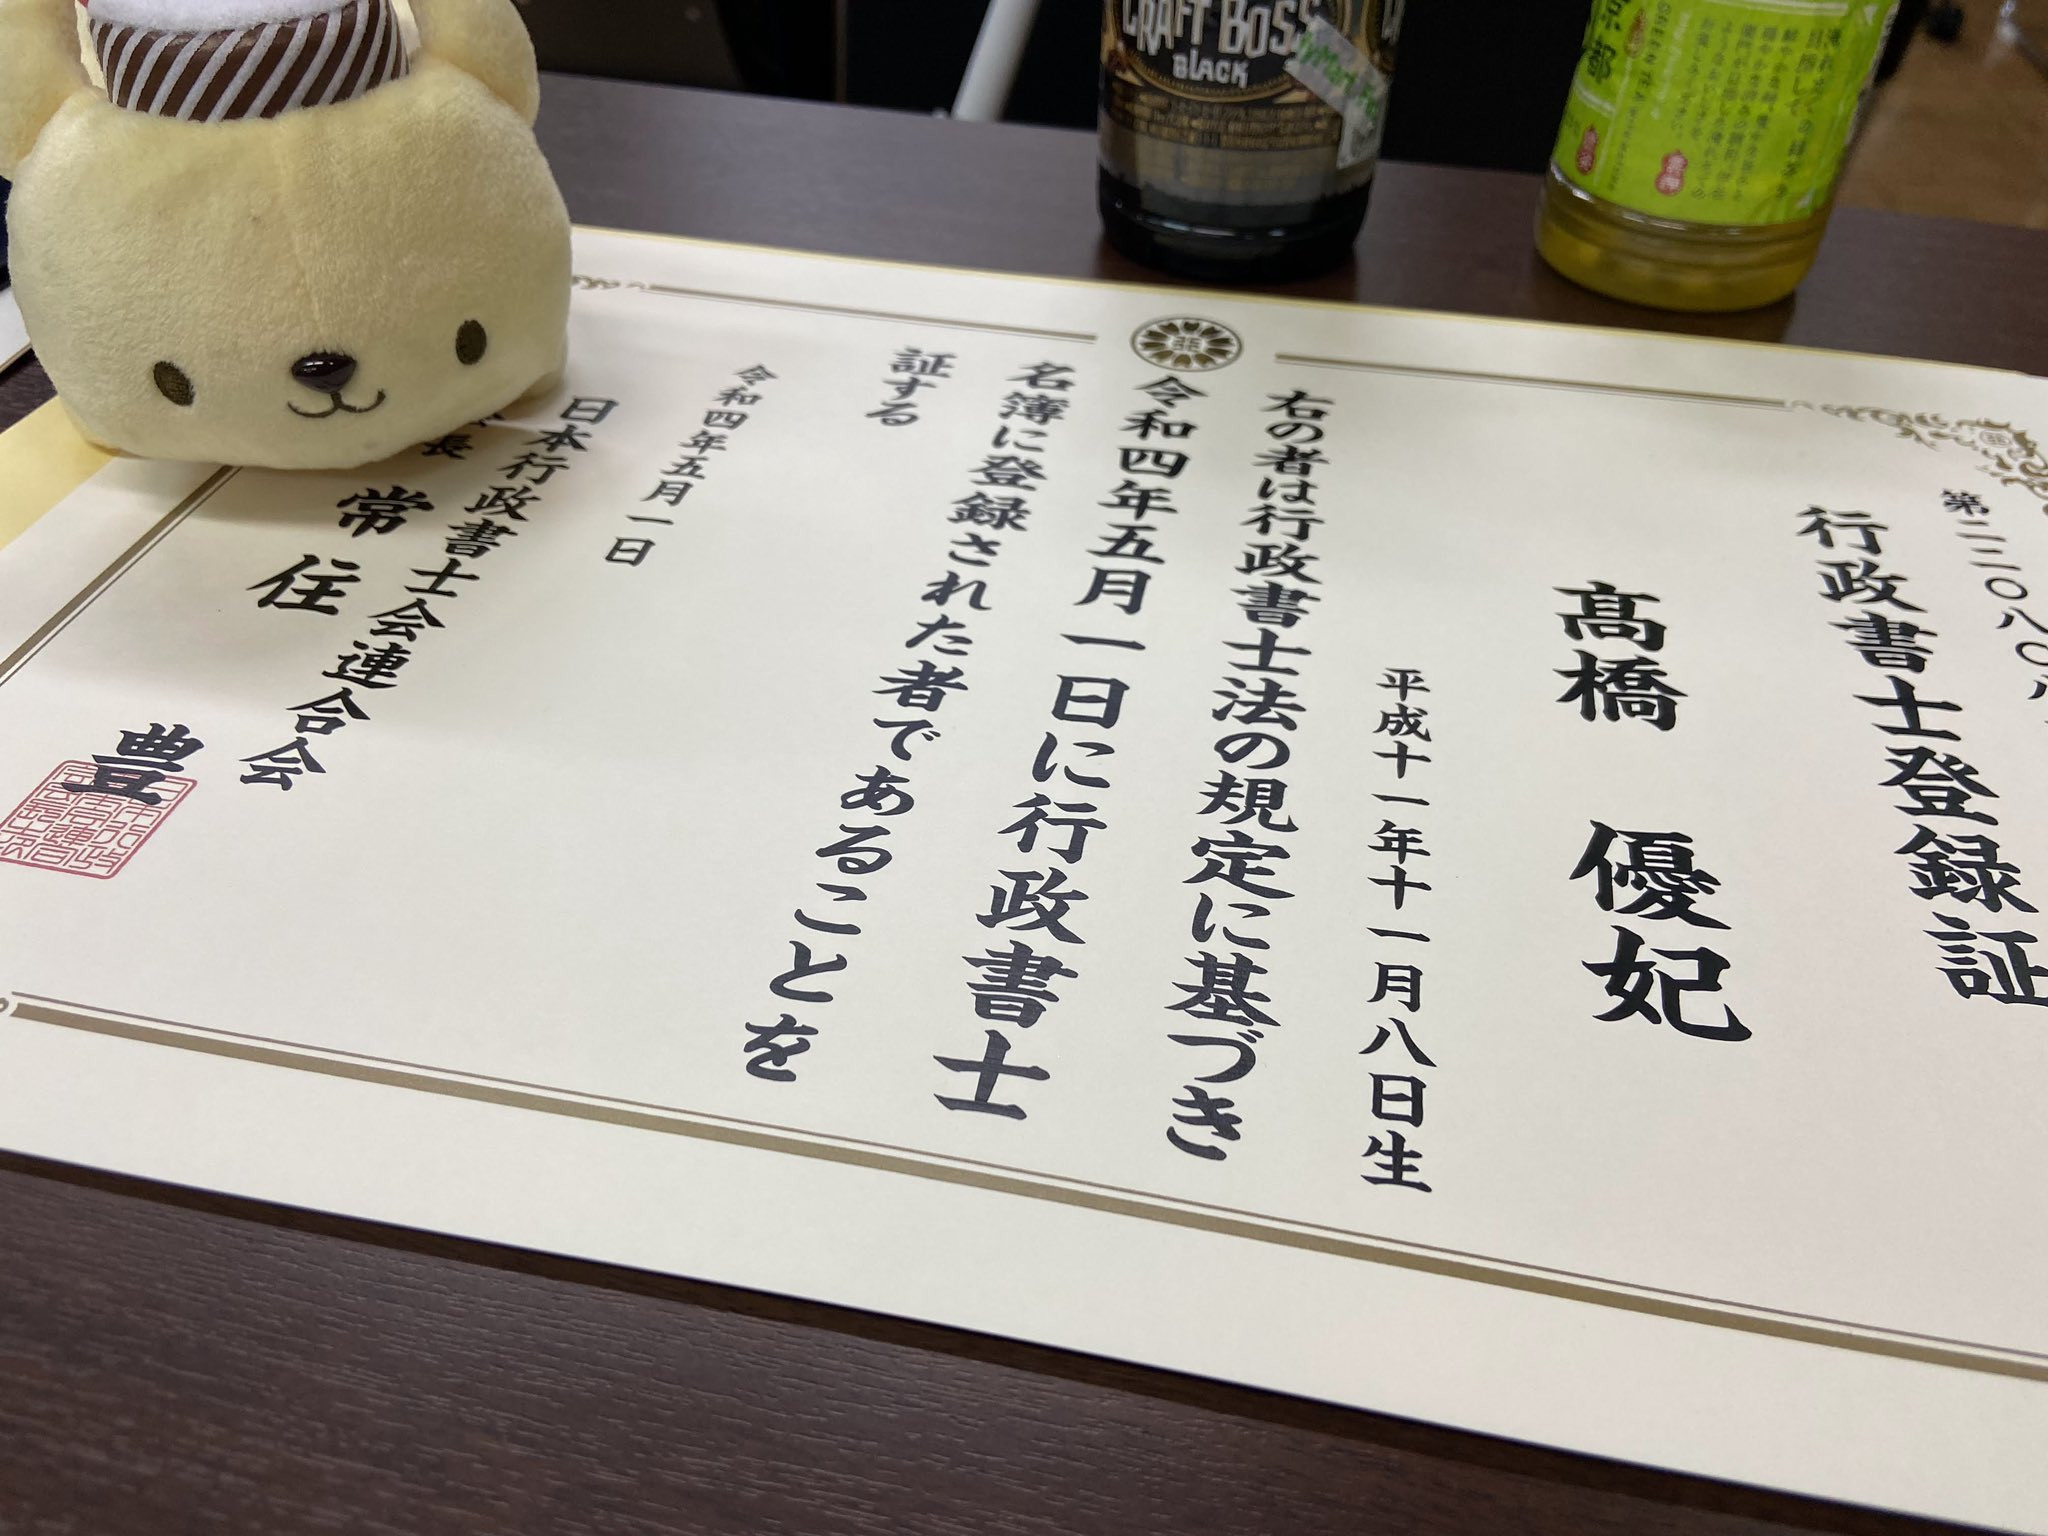 行政書士登録証
髙橋 優妃
平成十一年十一月八日生
右の者は行政書士法の規定に基づき
令和四年五月一日に行政書士
名簿に登録された者であることを
証する
令和四年五月一日
日本行政書士会連合会
長 常住 豊
CRAFT BOSS
BLACK